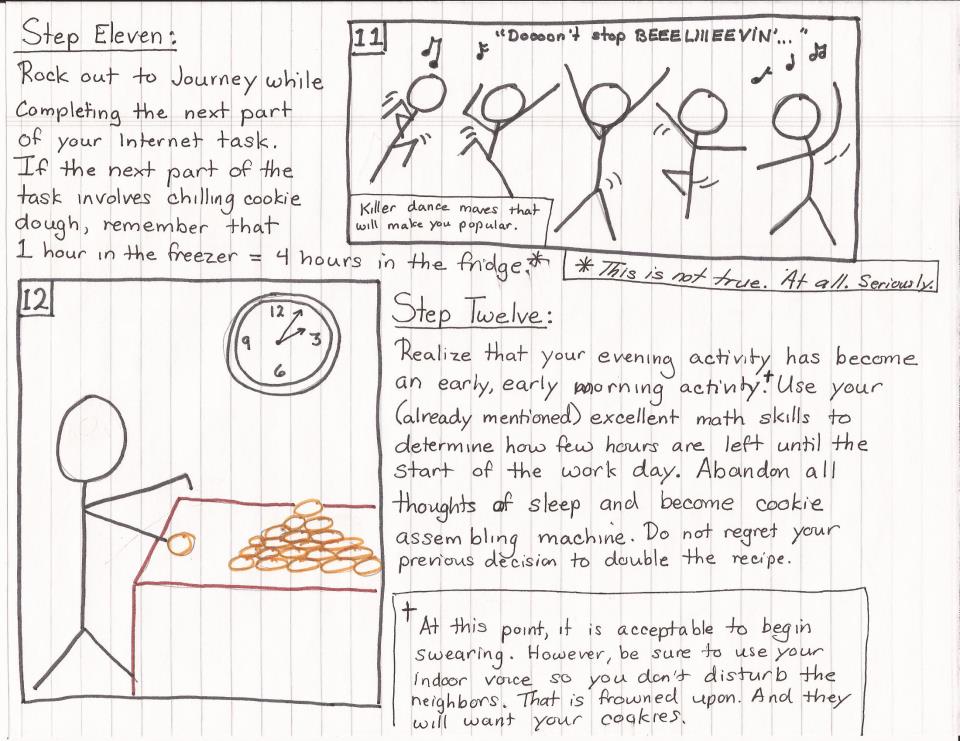 Step Eleven:
Rock out to Journey while
Completing the next part
of your Internet task.
If the next part of the
task involves chilling cookie
dough, remember that
1 hour in the freezer = 4 hours in the fridge.*
11
"Doooon't stop BEEELIIIEEVIN'..."
Killer dance moves that
will make you popular.
* This is not true. At all. Seriously.
12
12
3
6
9
Step Twelve:
Realize that your evening activity has become
an early, early morning activity.† Use your
(already mentioned) excellent math skills to
determine how few hours are left until the
start of the work day. Abandon all
thoughts of sleep and become cookie
assembling machine. Do not regret your
previous decision to double the recipe.
†
At this point, it is acceptable to begin
swearing. However, be sure to use your
indoor voice so you don't disturb the
neighbors. That is frowned upon. And they
will want your cookies.